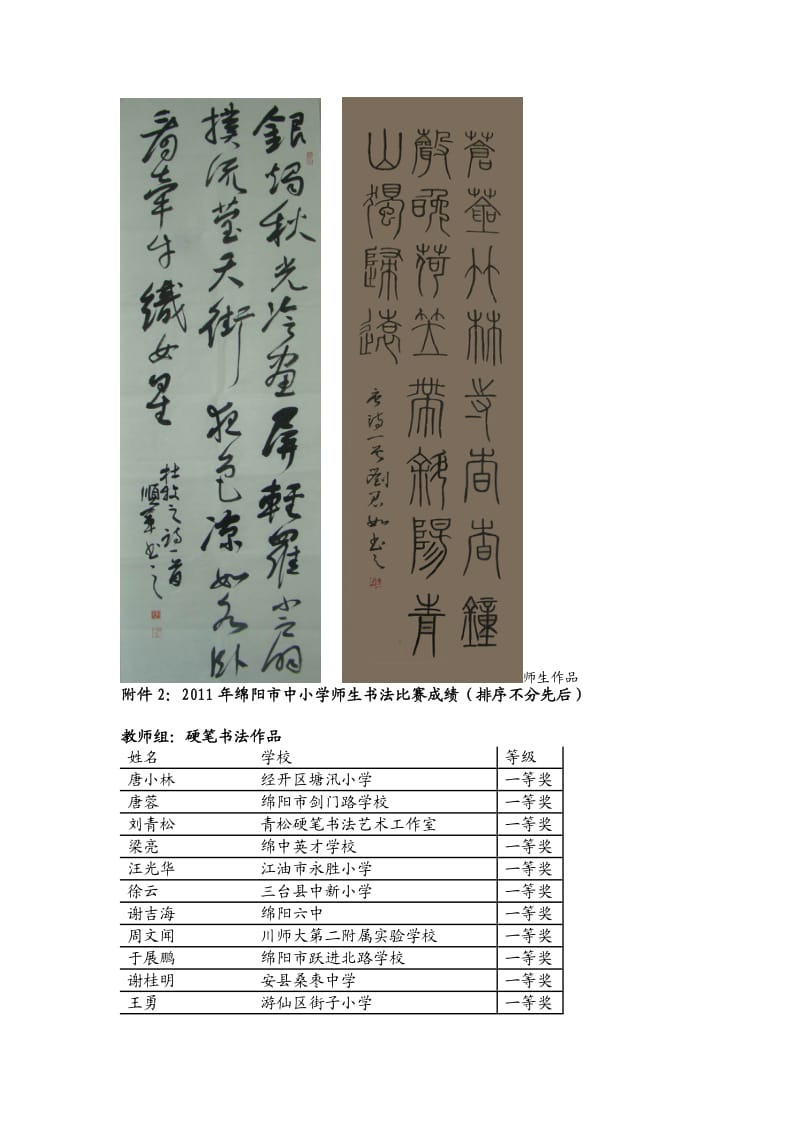 銀燭秋光冷畫屏輕羅小扇
撲流螢天街夜色凉如水卧
看牽牛織女星
杜牧之詩一首
順軍書之
蒼蒼竹林寺杳杳鐘
聲晚荷笠帶斜陽青
山獨歸遠
唐詩一首劉如書之
师生作品
附件 2：2011 年绵阳市中小学师生书法比赛成绩（排序不分先后）
教师组：硬笔书法作品
姓名 学校 等级
唐小林 经开区塘汛小学 一等奖
唐蓉 绵阳市剑门路学校 一等奖
刘青松 青松硬笔书法艺术工作室 一等奖
梁亮 绵中英才学校 一等奖
汪光华 江油市永胜小学 一等奖
徐云 三台县中新小学 一等奖
谢吉海 绵阳六中 一等奖
周文闻 川师大第二附属实验学校 一等奖
于展鹏 绵阳市跃进北路学校 一等奖
谢桂明 安县桑枣中学 一等奖
王勇 游仙区街子小学 一等奖